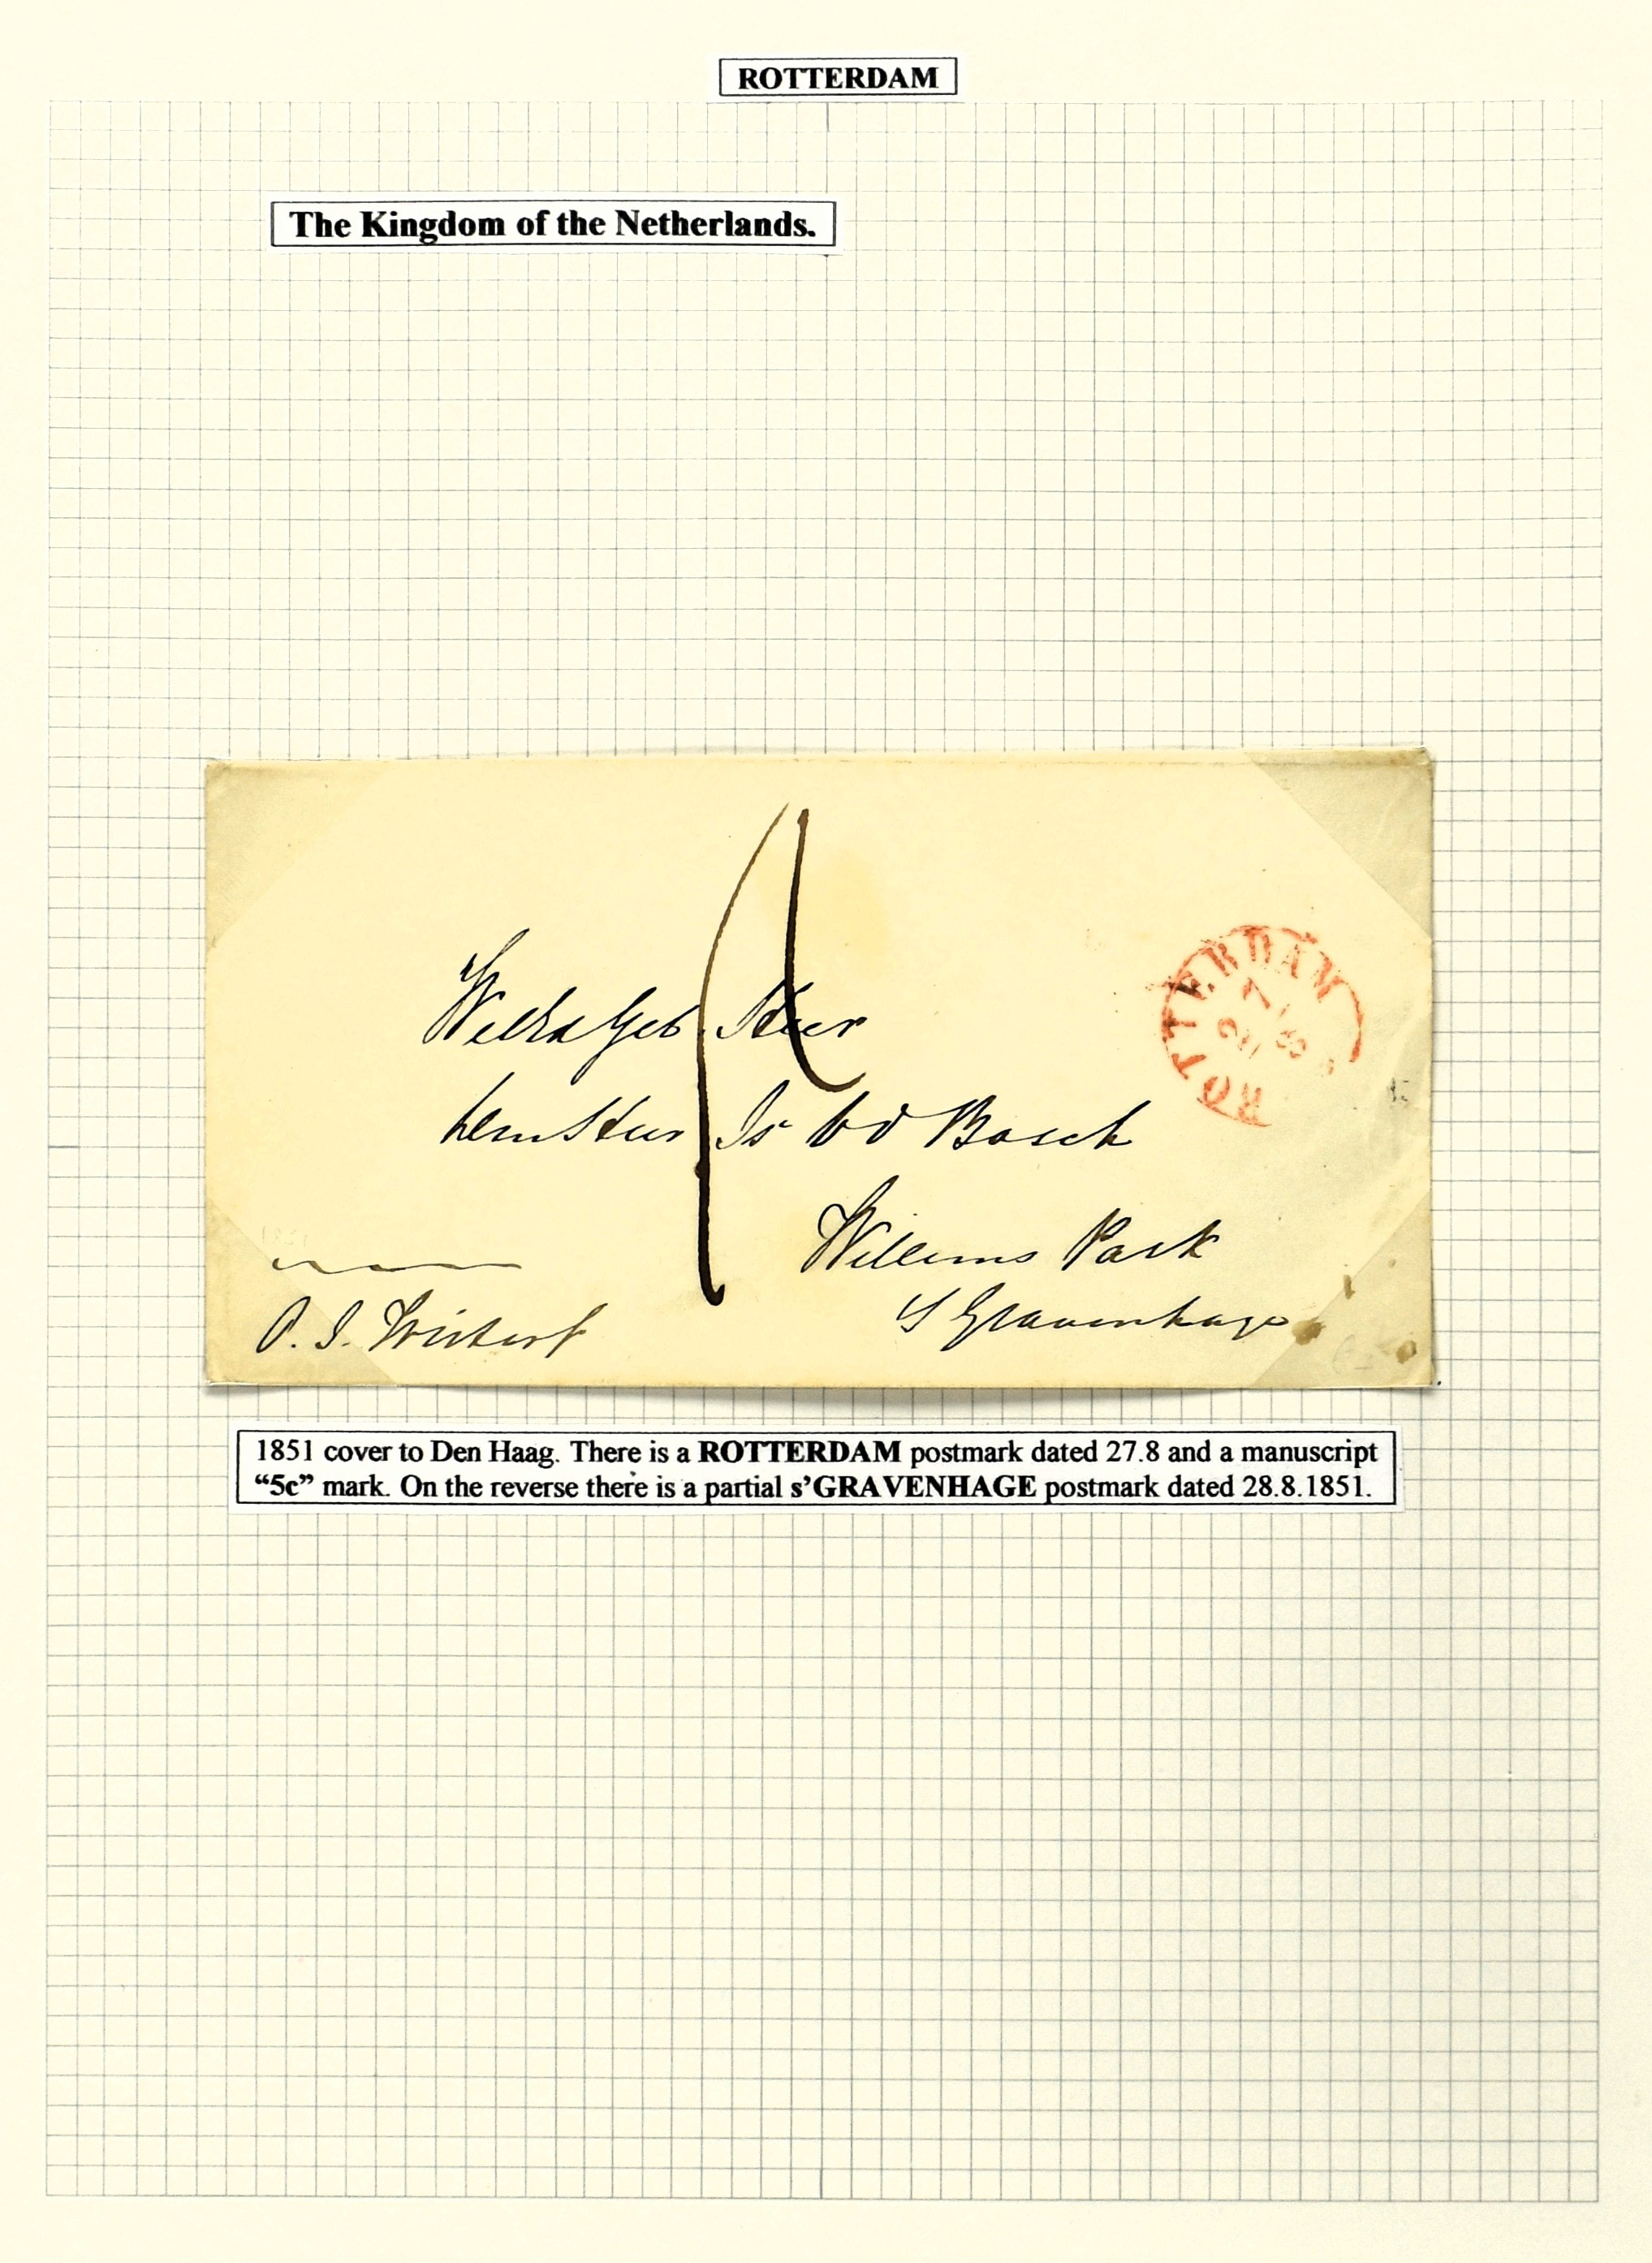 ROTTERDAM
The Kingdom of the Netherlands.
ROTTERDAM
27
8
Heer
Bosch
Willems Park
S Gravenhage
1851 cover to Den Haag. There is a ROTTERDAM postmark dated 27.8 and a manuscript
“5c” mark. On the reverse there is a partial s’GRAVENHAGE postmark dated 28.8.1851.